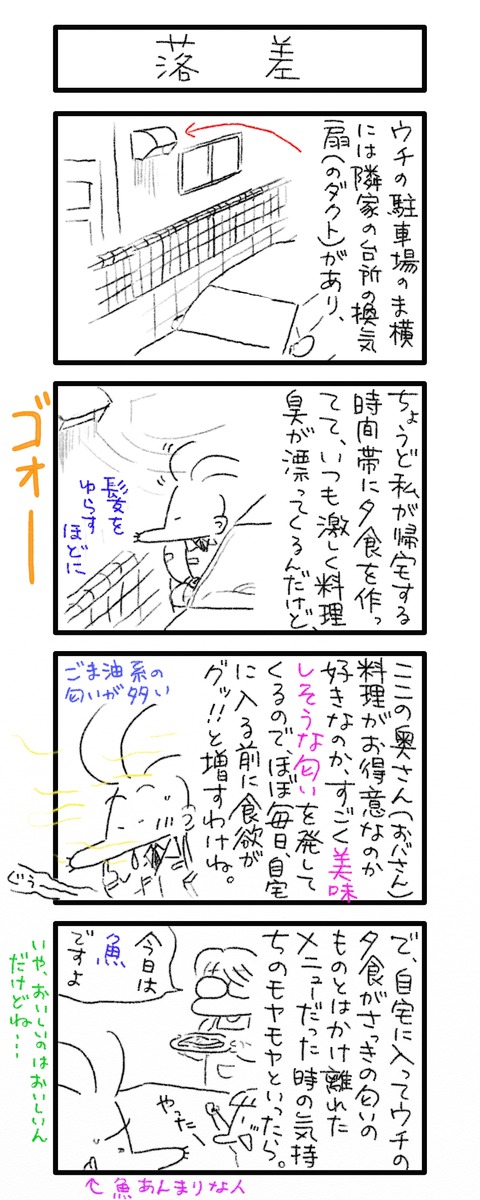 落差
ウチの駐車場のま横
には隣家の台所の換気
扇(のダクト)があり、
ちょうど私が帰宅する
時間帯に夕食を作っ
てて、いつも激しく料理
臭が漂ってくるんだけど、
髪を
ゆらす
ほどに
ゴォー
ここの奥さん(おばさん)
料理がお得意なのか
好きなのか、すごく美味
しそうな匂いを発して
くるので、ほぼ毎日、自宅
に入る前に食欲が
グッ!!と増すわけね。
ごま油系の
匂いが多い
ぐぅ
で、自宅に入ってウチの
夕食がさっきの匂いの
ものとはかけ離れた
メニューだった時の気持
ちのモヤモヤといったら。
今日は
魚
ですよ
やったー
いや、おいしいのはおいしいん
だけどね…
↑魚あんまりな人